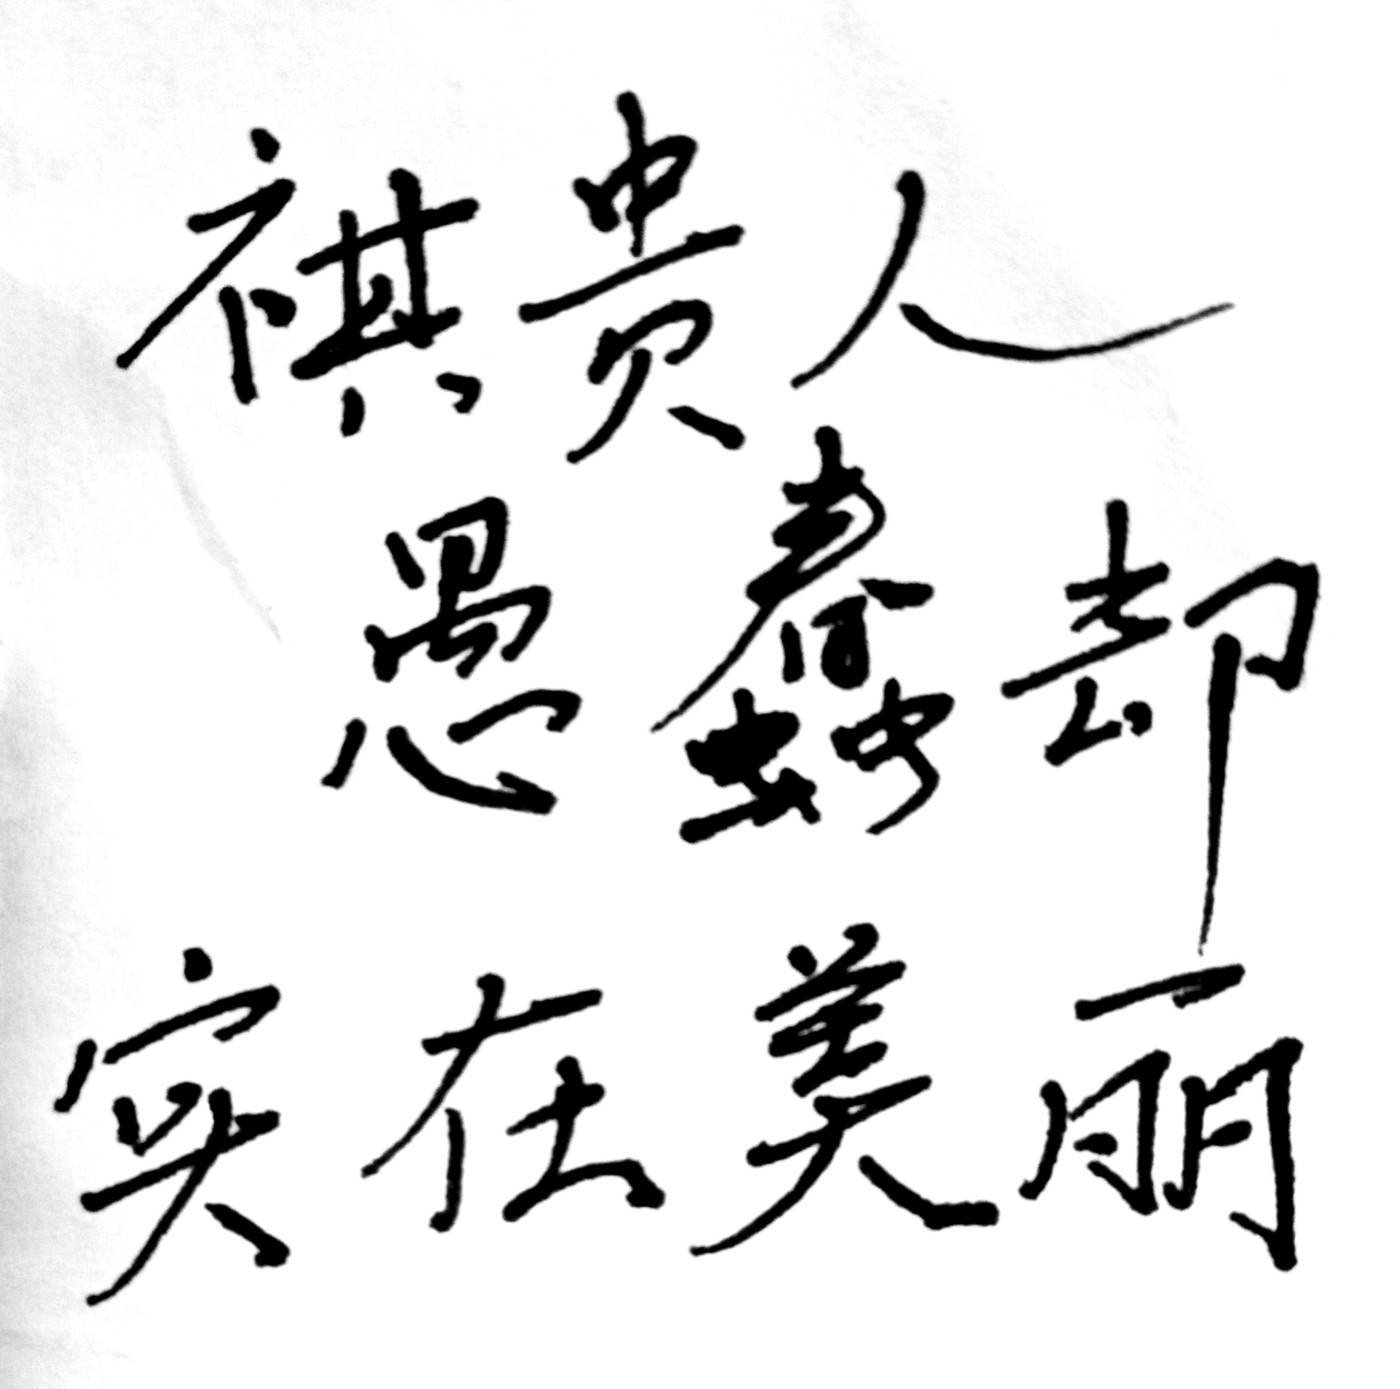 祺贵人
愚蠢却
实在美丽